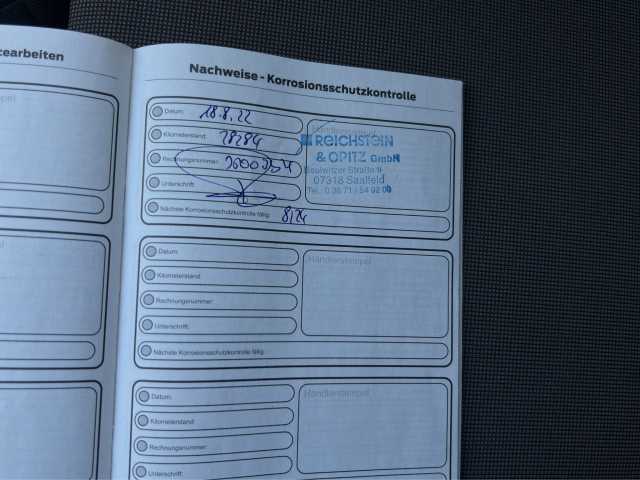 cearbeiten
Nachweise - Korrosionsschutzkontrolle
Datum: 18.8.22
Kilometerstand: 28284
Rechnungsnummer:
Unterschrift:
Nächste Korrosionsschutzkontrolle fällig: 8/24
REICHSTEIN
& OPITZ GmbH
Beulwitzer Straße
07318 Saalfeld
Tel.: 0 36 71 / 54 92 00
Datum:
Kilometerstand:
Rechnungsnummer:
Unterschrift:
Nächste Korrosionsschutzkontrolle fällig:
Händlerstempel
Datum:
Kilometerstand:
Rechnungsnummer:
Unterschrift:
Händlerstempel